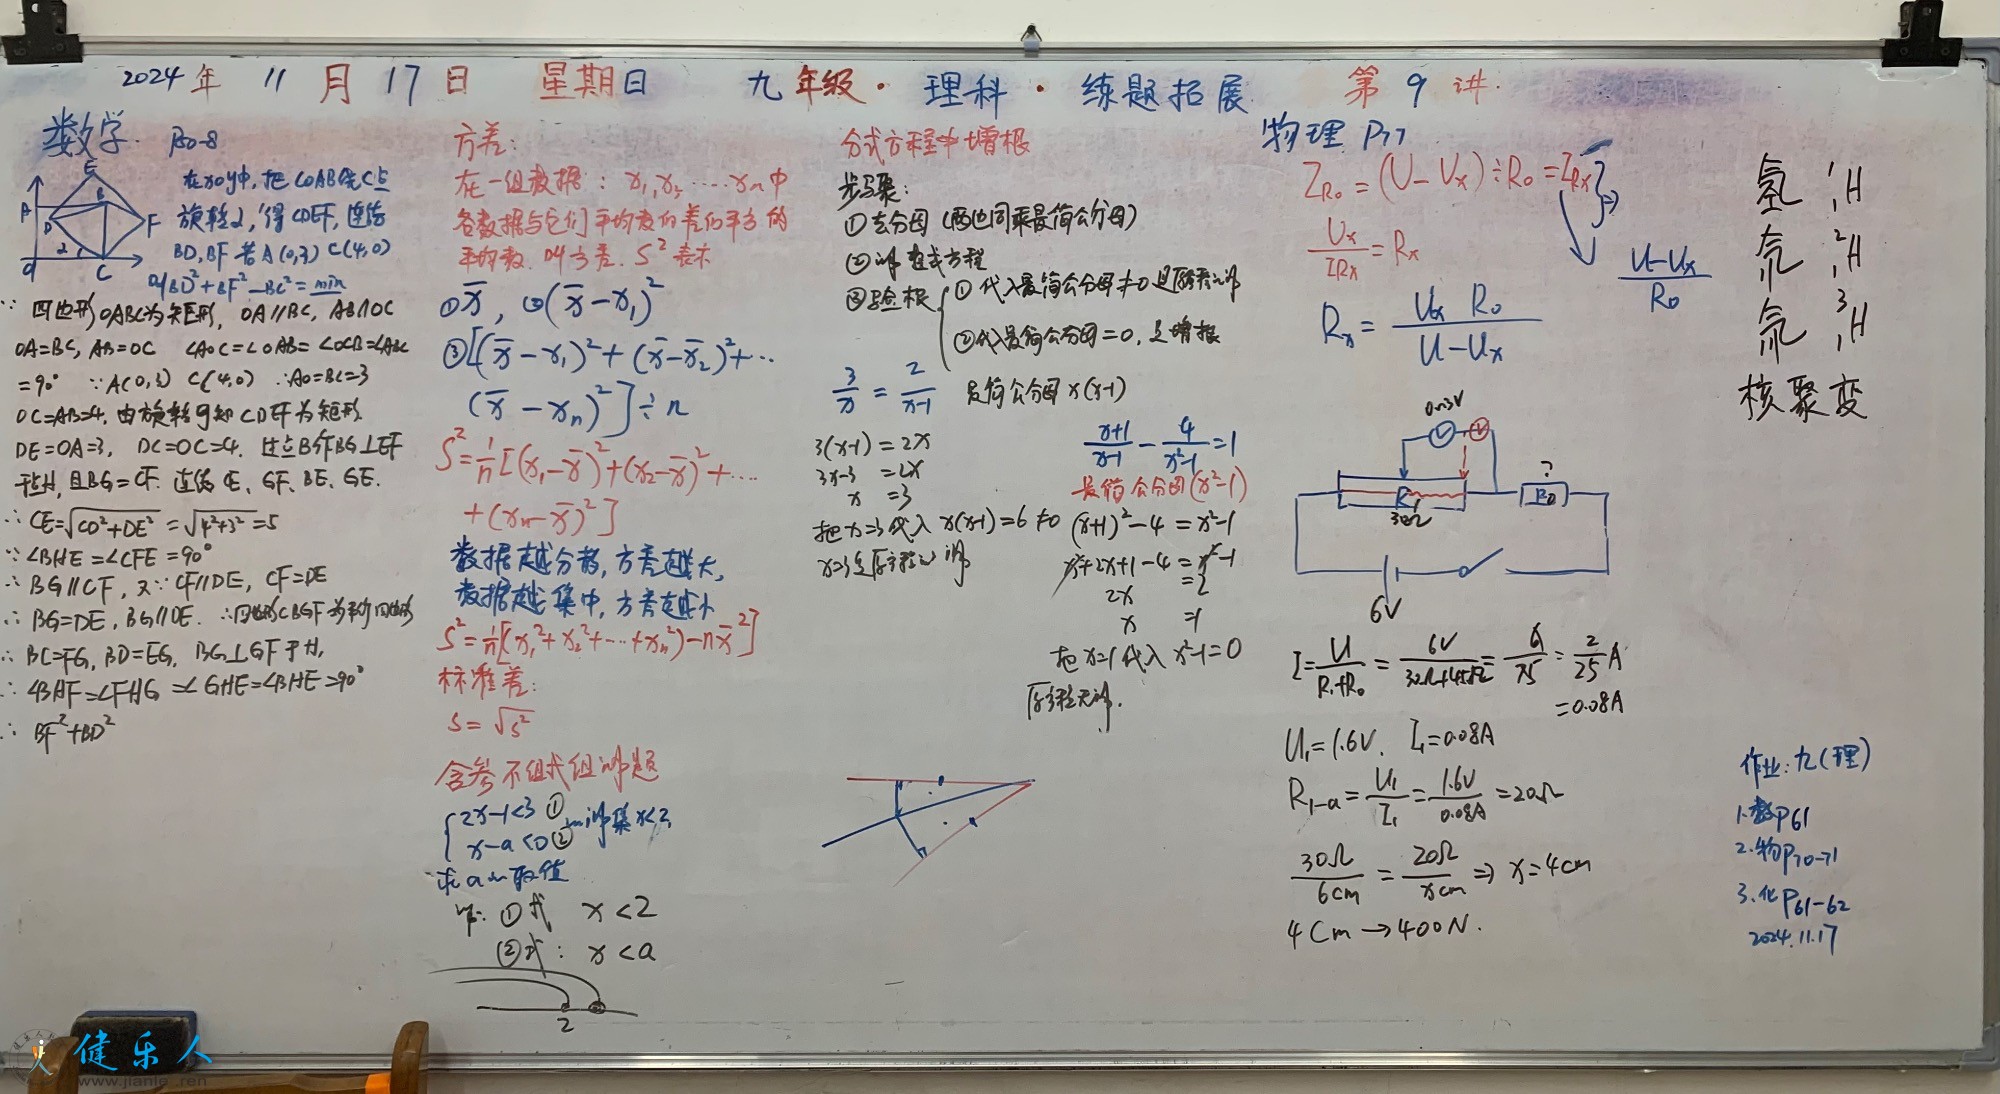 2024年 11月 17日 星期日 九年级·理科·练题拓展 第9讲
数学 P50-8
E
A B
D F
2
O C
在xoy中,把COAB绕C点
旋转α,得CDEF,连结
BD,BF 若A(0,3) C(4,0)
则BD²+BF²-BC²=min
∵ 四边形OABC为矩形, OA∥BC, AB∥OC
OA=BC, AB=OC ∠AOC=∠OAB=∠OCB=∠ABC
=90° ∵A(0,3) C(4,0) ∴AO=BC=3
OC=AB=4, 由旋转可知CDEF为矩形
DE=OA=3, DC=OC=4. 过点B作BG⊥EF
于点H, 且BG=CF. 连结CE、GF、BE、GE.
∴ CE=√CD²+DE² = √4²+3² =5
∵ ∠BHE=∠CFE=90°
∴ BG∥CF, 又∵CF∥DE, CF=DE
∴ BG=DE, BG∥DE. ∴四边形CBGF为平行四边形
∴ BC=FG, BD=EG, BG⊥GF于H,
∴ ∠BHF=∠FHG=∠GHE=∠BHE=90°
∴ BF²+BD²
方差:
在一组数据: x₁,x₂……xₙ中
各数据与它们平均数的差的平方的
平均数. 叫方差. S²表示
①x̄, ②(x̄-x₁)²
③[(x̄-x₁)²+(x̄-x̄₂)²+…
(x̄-xₙ)²]÷n
S²=1/n[(x₁-x̄)²+(x₂-x̄)²+…
+(xₙ-x̄)²]
数据越分散,方差越大,
数据越集中,方差越小
S²=1/n[(x₁²+x₂²+…+xₙ²)-nx̄²]
标准差:
S=√S²
含参不组式组的解题
{2x-1<3 ①
x-a<0 ② 的解集x<2,
求a的取值
解: ①式 x<2
②式: x<a
2
分式方程中增根
步骤:
①去分母 (两边同乘最简公分母)
②解整式方程
③验根 {①代入最简公分母≠0是原方程的解
②代入最简公分母=0,是增根
3/x = 2/(x-1) 最简公分母x(x-1)
3(x-1)=2x
3x-3 =2x
x =3
把x=3代入x(x-1)=6≠0
x=3是原方程的解
(x+1)/(x-1) - 4/(x²-1) =1
最简公分母(x²-1)
(x+1)²-4=x²-1
x²+2x+1-4=x²-1
2x =2
x =1
把x=1代入x²-1=0
原方程无解.
物理 P77
I_R₀=(U-Uₓ)÷R₀=I_Rx
Uₓ/I_Rx=Rₓ
(U-Uₓ)/R₀
Rₓ= UₓR₀/(U-Uₓ)
0~3V
V V
R₁
30Ω
?
R₀
6V
I=U/(R₁+R₀)=6V/(30Ω+45Ω)=6/75=2/25A
=0.08A
U₁=1.6V. I₁=0.08A
R₁₋ₐ=U₁/I₁=1.6V/0.08A=20Ω
30Ω/6cm=20Ω/xcm⇒x=4cm
4cm→400N.
氢 ¹₁H
氘 ²₁H
氚 ³₁H
核聚变
作业:九(理)
1.数P61
2.物P70-71
3.化P61-62
2024.11.17
健乐人
www.jianle.ren